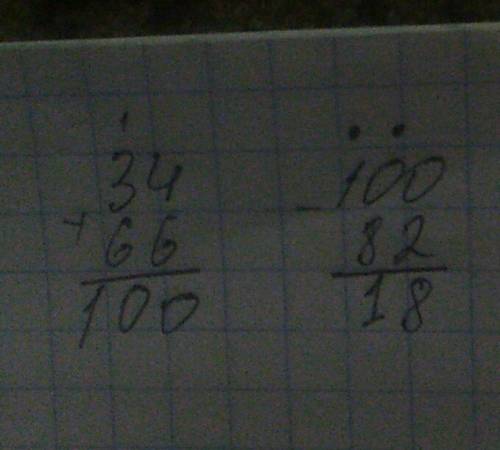 1
34
+
66
100
• •
100
−
82
18